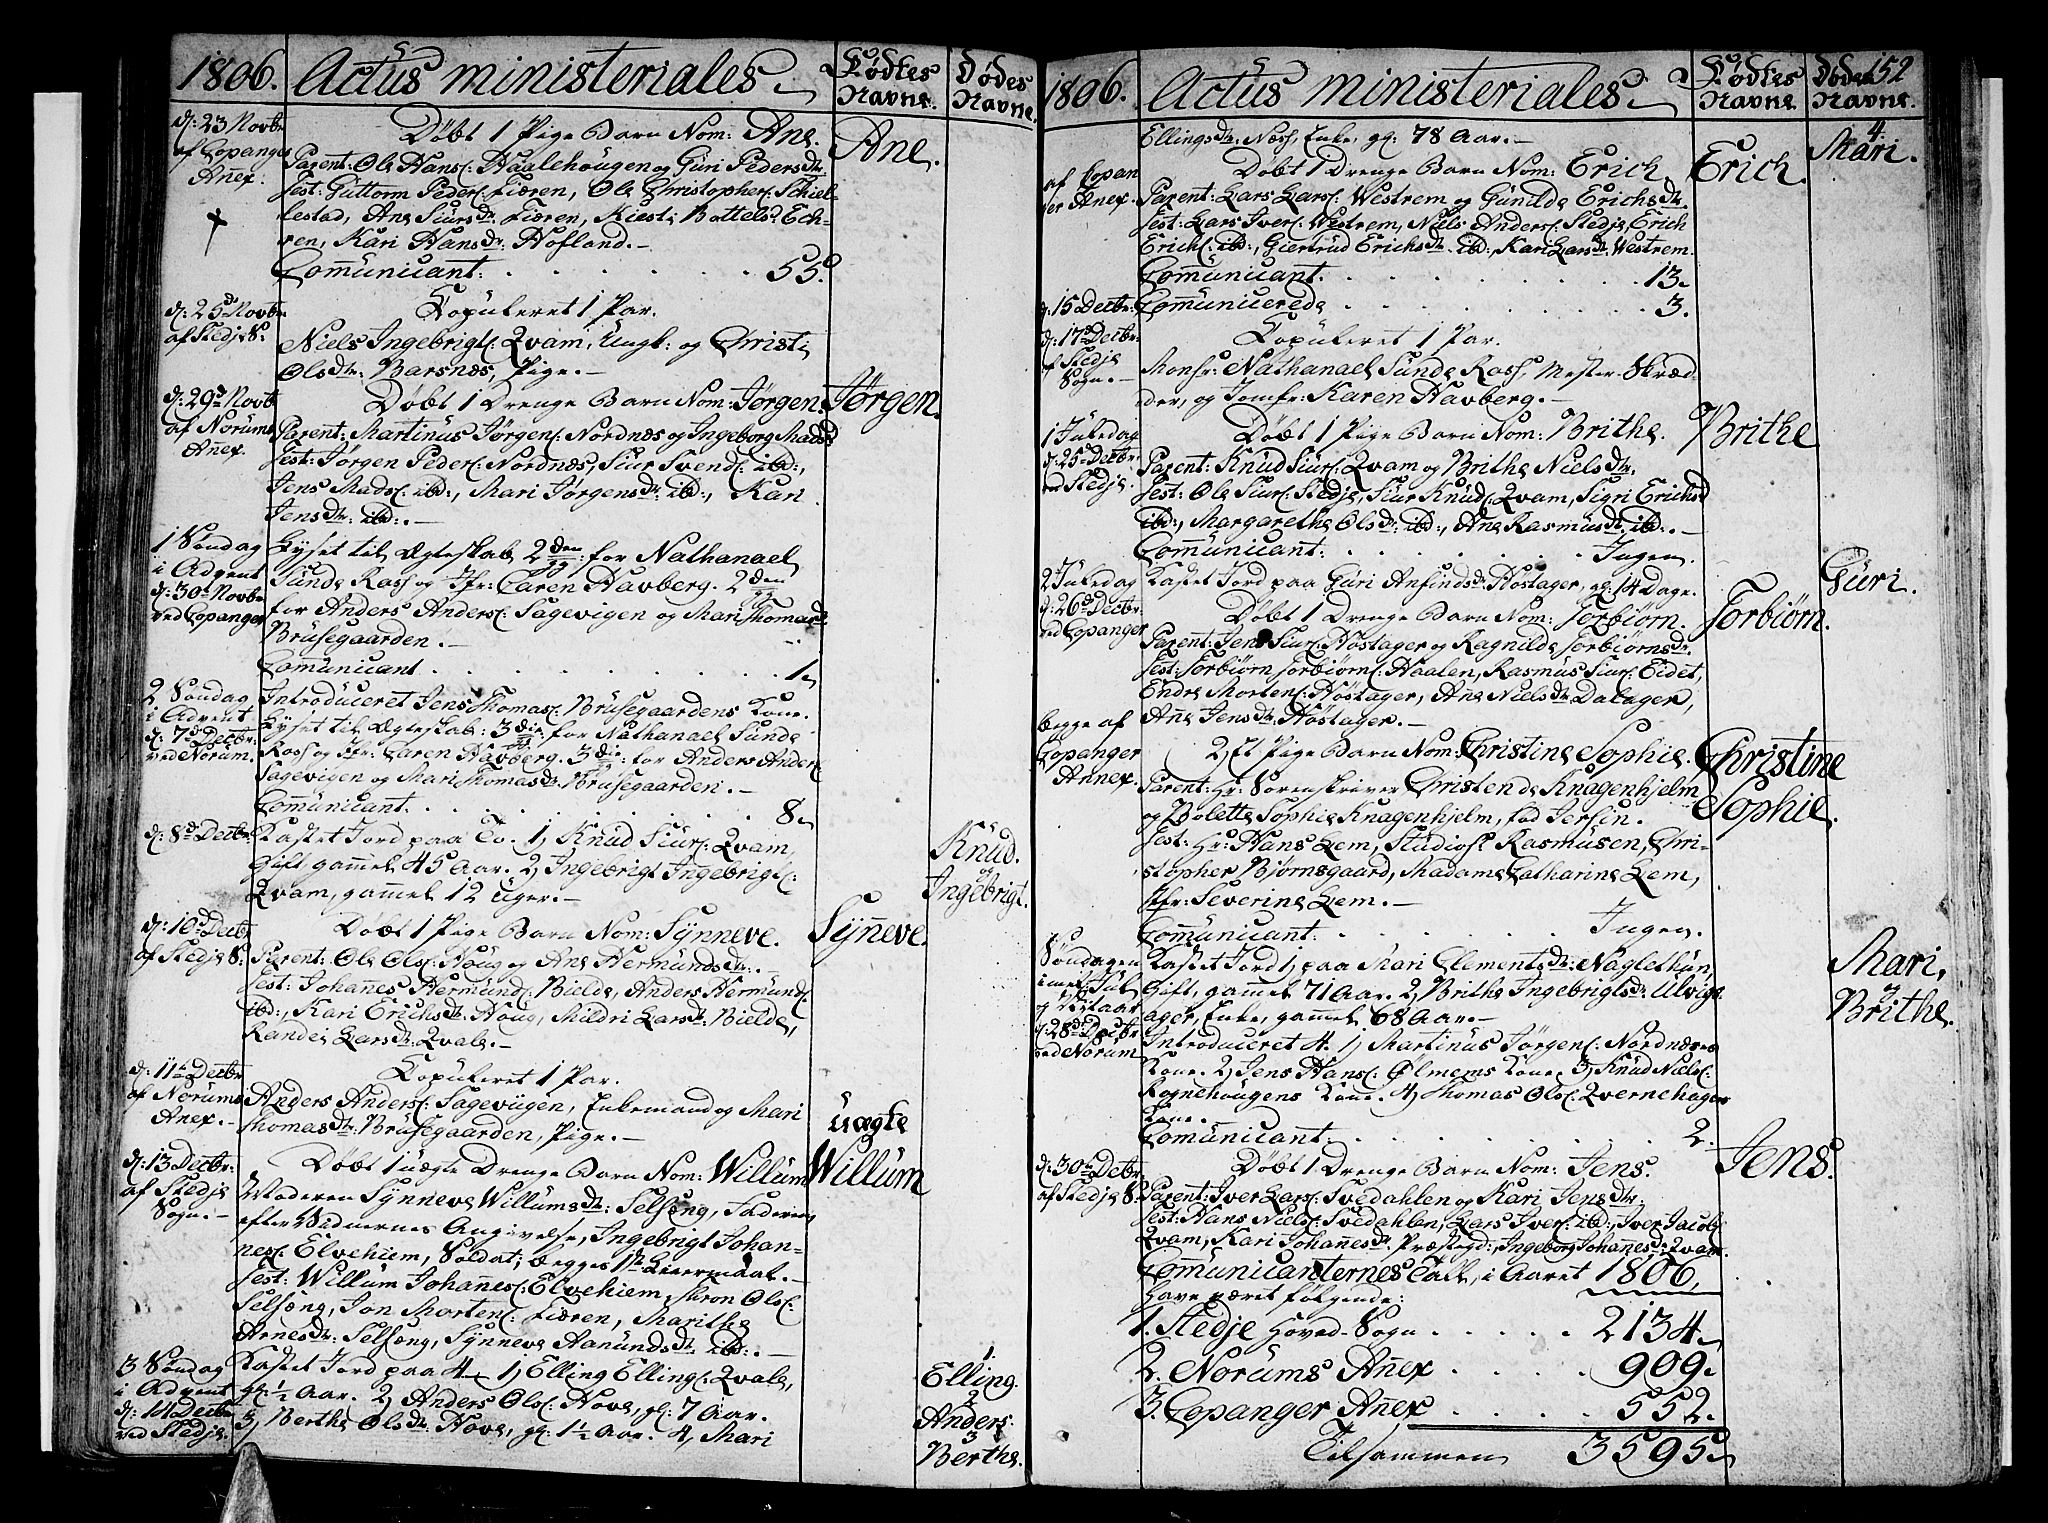 1806. Actus ministeriales. Fødtes Navne. Dødes Navne.
d: 23 Novbr af Copanger Anex.
Døbt 1 Pige Barn Nom: Ane. Ane.
Parent: Ole Hans: Haalehougen og Guri Pedersdtr.
Test: Guttorm Peders: Fiæren, Ole Christophers: Schiel-
lestad, Ane Siursdr: Fiæren, Kiesti Bottels: Ech-
ren, Kari Hansdr: Hofland.
Comunicant: 55.
d: 25de Novbr af Stedje S:
Copuleret 1 Par.
Niels Ingebrigts: Qvam, Ungk: og Christi
Olsdtr: Barsnæs, Pige.
d: 29de Novb af Norums Anex.
Døbt 1 Drenge Barn Nom: Jørgen. Jørgen.
Parent: Martinus Jørgens: Nordnæs og Ingeborg Madsd
Test: Jørgen Peders: Nordnæs, Siur Svends: ibd:,
Jens Mads: ibd:, Mari Jørgensdr: ibd:, Kari
Jensdtr: ibd:.
1 Søndag i Advent d: 30te Novbr ved Copanger
Lyset til Ægteskab 2den gg: for Nathanael
Sunde Ross og Jfr: Caren Havberg. 2den gg
for Anders Anders: Sagevigen og Mari Thomasd
Brusegaarden.
Comunicant 1.
2 Søndag i Advent d: 7de Decbr: ved Norum.
Introduceret Jens Thomas: Brusegaardens Kone.
Lyset til Ægteskab: 3die gg: for Nathanael Sunde
Ross og Jfr: Caren Havberg. 3die gg: for Anders Anders:
Sagevigen og Mari Thomasdr: Brusegaarden.
Comunicant. 8.
d: 8de Decbr:
Kastet Jord paa To. 1, Knud Siurs: Qvam, Knud.
Gift, gammel 45 Aar. 2, Ingebrigt Ingebrigts: og
Qvam, gammel 12 Uger. Ingebrigt.
d: 10de Decbr af Stedje S:
Døbt 1 Pige Barn Nom: Synneve. Syneve.
Parent: Ole Ols: Houg og Ane Hermundsdtr:.
Test: Johannes Hermunds: Bielde, Anders Hermunds:
ibd:, Kari Erichsdr: Houg, Mildri Larsdr: Bielde,
Randei Larsdr: Qvale.
d: 11te Decbr af Norums Anex.
Copuleret 1 Par.
Anders Anders: Sagevigen, Enkemand og Mari
Thomasdtr: Brusegaarden, Pige.
d: 13 Decbr: af Stedje Sogn.
Døbt 1 uægte Drenge Barn Nom: Willum uægte Willum
Moderen Synneve Willumsdr: Selseng, Faderen
efter Vidnernes Angivelse, Ingebrigt Johan-
nes: Elvehiem, Soldat; begges 1ste Leiermaal.
Test: Willum Johannes: Elvehiem, Ols:
Selseng, Jon Mortens: Fiæren, Marithe
Arnesdr: Selseng, Synneve Aamundsdr ibd:.
3 Søndag i Advent d: 14 Decbr ved Stedje.
Kastet Jord paa 4. 1, Elling Ellings: Qvale, 1. Elling.
gl: 1/2 Aar. 2, Anders Ols: Hove, gl: 7 Aar. 2 Anders.
3, Berthe Olsdr: Hove, gl: 1 1/2 Aar. 4, Mari 3 Berthe.
1806. Actus ministeriales. Fødtes Navne. Dødes Navne. 152
Ellingsdr: Næss, Enke, gl: 78 Aar. 4. Mari.
af Copan
ger Anex.
Døbt 1 Drenge Barn Nom: Erich. Erich.
Parent: Lars Lars: Westrem og Gunilde Erichsdtr.
Test: Lars Ivers: Westrem, Niels Anders: Stedje, Erich
Erichs: ibd:, Giertrud Erichsdr: ibd:, Kari Larsdr: Westrem.
Comunicant. 13.
d: 15 Decbr: Comunicerede 3.
d: 17de Decbr: af Stedje Sogn.
Copuleret 1 Par.
Monsr: Nathanael Sunde Ross, Mester Skræd-
der, og Jomfr: Karen Havberg.
1 Juledag d: 25de Decbr: ved Stedje.
Døbt 1 Pige Barn Nom: Brithe. Brithe
Parent: Knud Siurs: Qvam og Brithe Nielsdtr:
Test: Ole Siurs: Stedje, Siur Knuds: Qvam, Sigri Erichsd
ibd:, Margarethe Olsdr: ibd:, Ane Rasmusdr. ibd:.
Comunicant: Ingen.
2 Juledag d: 26de Decbr: ved Copanger
Kastet Jord paa Guri Anfindsdr: Høstager, gl: 14 Dage. Guri.
Døbt 1 Drenge Barn Nom: Torbiørn. Torbiørn.
Parent: Jens Siurs: Høstager og Ragnilde Torbiørnsdr.
Test: Torbiørn Torbiørns: Haalen, Rasmus Siurs: Eidet,
Endre Mortens: Høstager, Ane Nielsdr: Dalager,
Ane Jensdr: Høstager.
begge af Copanger Annex.
2, Et Pige Barn Nom: Christine Sophie. Christine Sophie.
Parent: Hr: Sorenskriver Christen de Knagenhjelm
og Bolette Sophie Knagenhjelm, fød Jersin.
Test: Hr: Hans Lem, Studios: Rasmusen, Chri-
stopher Bjørnsgaard, Madame Catharine Lem,
Jfr: Severine Lem.
Comunicant: Ingen.
Søndagen imel: Jul og Nÿtaar d: 28de Decbr: ved Norum
Kastet Jord 1, paa Mari Clementsdr: Naglethun, Mari,
Gift, gammel 71 Aar. 2, Brithe Ingebrigtsdr: Ulvigs- og
ager, Enke, gammel 68 Aar. Brithe.
Introduceret 4. 1, Martinus Jørgens: Nordnæses
Kone. 2, Jens Hans: Ølmems Kone. 3, Knud Niels:
Rognehougens Kone. 4, Thomas Ols: Qvernehagen
Kone.
Comunicant: 2.
d: 30te Decbr: af Stedje S:
Døbt 1 Drenge Barn Nom: Jens. Jens.
Parent: Iver Lars: Svedahlen og Kari Jensdtr:
Test: Hans Niels: Svedahlen, Lars Ivers: ibd:, Iver Jacobs:
Qvam, Kari Johanesdr: Præstegd:, Ingeborg Johanesdr: Qvam.
Comunicanternes Tall, i Aaret 1806,
have været følgende:
1. Stedje Hoved-Sogn 2134.
2. Norums Anex 909.
3. Copanger Anex 552.
Tilsammen 3595.